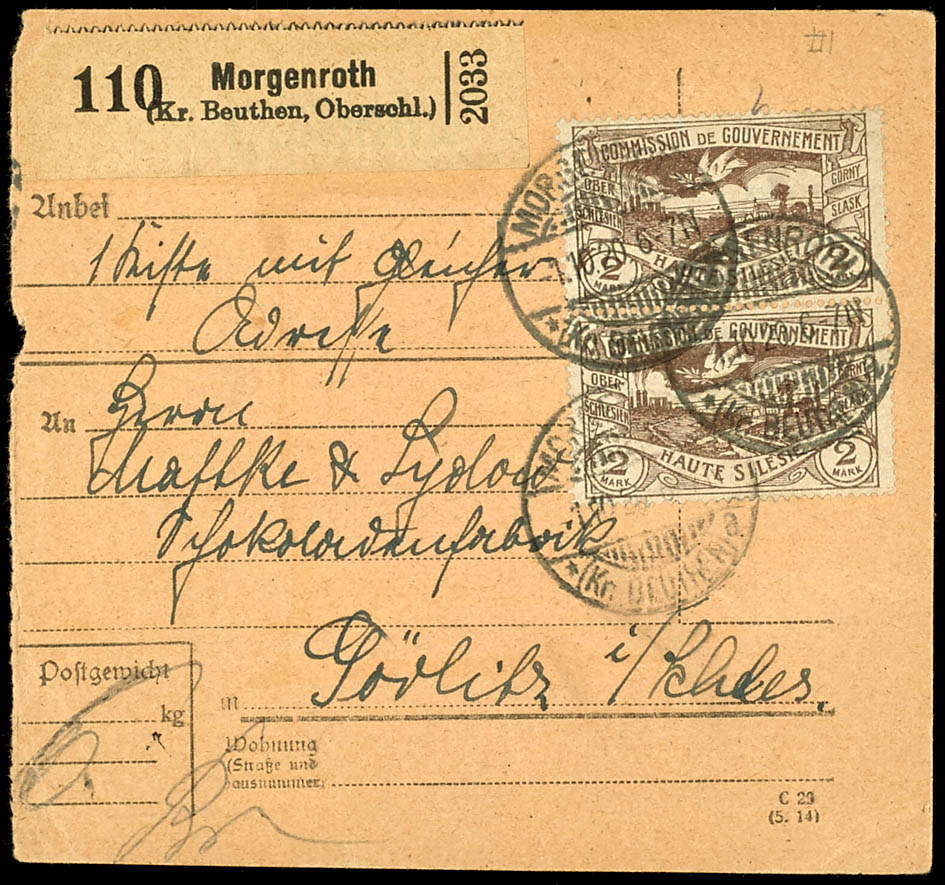 110 Morgenroth
(Kr. Beuthen, Oberschl.)
2033
Anbei
1 Kiste mit gleicher
Adresse
An Herrn
& Lydow
Schokoladenfabrik
in Görlitz i/Schles.
Postgewicht
kg
Wohnung
(Straße und
Hausnummer)
C 23
(5. 14)
COMMISSION DE GOUVERNEMENT
OBER SCHLESIEN
GORNY SLASK
HAUTE SILESIE
2 MARK
2
COMMISSION DE GOUVERNEMENT
OBER SCHLESIEN
GORNY
HAUTE SILESIE
2 MARK
2 MARK
MORG
1.10.20 6-7N
GENROTH
6-7N
(Kr. BEUTHEN) a
MOR
(Kr. BEUTHEN) a